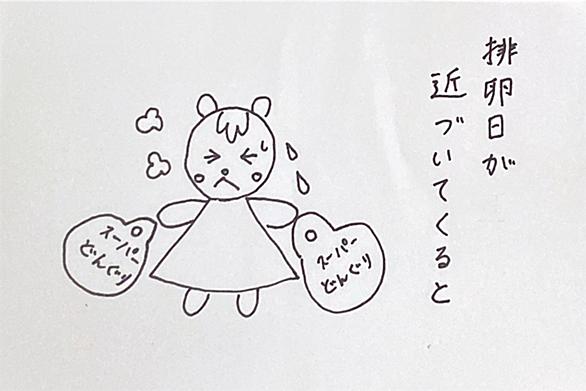 排卵日が
近づいてくると
スーパー
どんぐり
スーパー
どんぐり